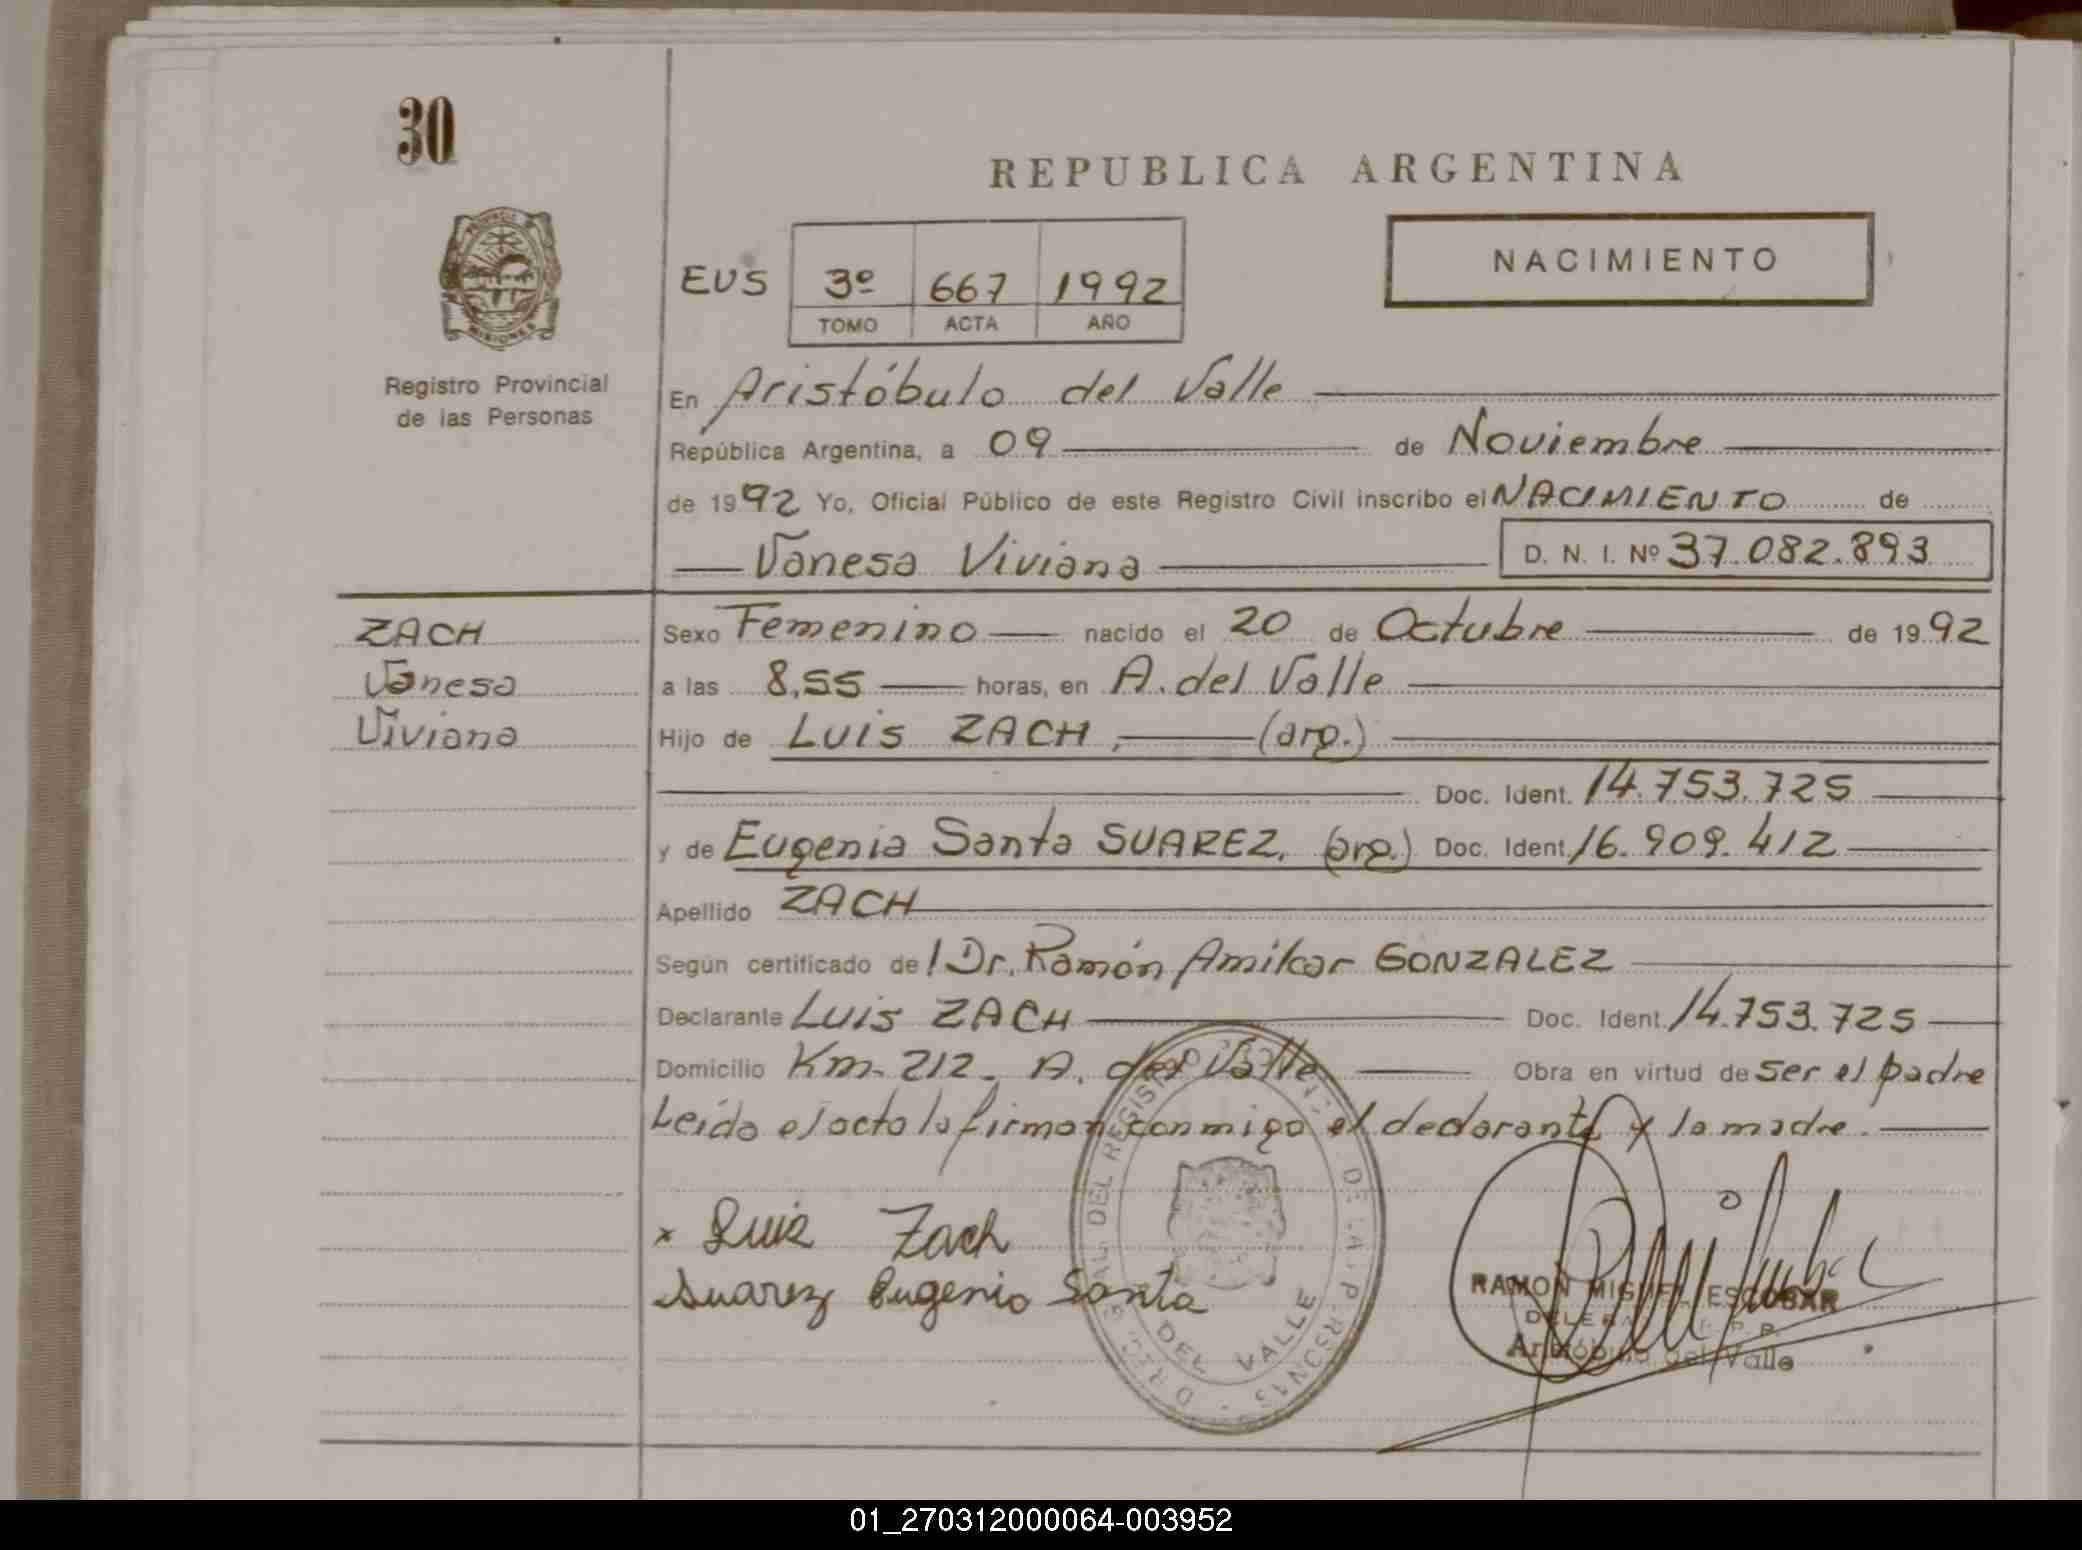 30
REPUBLICA ARGENTINA
MISIONES
Registro Provincial
de las Personas
EUS 3º 667 1992
TOMO ACTA AÑO
NACIMIENTO
En Aristóbulo del Valle
República Argentina, a 09 de Noviembre
de 1992 Yo, Oficial Público de este Registro Civil inscribo el NACIMIENTO de
Vanesa Viviana D. N. I. Nº 37.082.893
ZACH
Vanesa
Viviana
Sexo Femenino nacido el 20 de Octubre de 1992
a las 8,55 horas, en A. del Valle
Hijo de Luis ZACH, (arg.)
Doc. Ident. 14.753.725
y de Eugenia Santa SUAREZ. (arg.) Doc. Ident. 16.909.412
Apellido ZACH
Según certificado del Dr. Ramón Amilcar GONZALEZ
Declarante Luis ZACH Doc. Ident. 14.753.725
Domicilio Km. 212. A. del Valle Obra en virtud de ser el padre
Leída el acta la firman conmigo el declarante y la madre.
x Luis Zach
Suarez Eugenia Santa
DEL REGISTRO DE LA PERSONAS
DEL VALLE
RAMON MIGUEL ESCOBAR
Aristóbulo del Valle
01_270312000064-003952